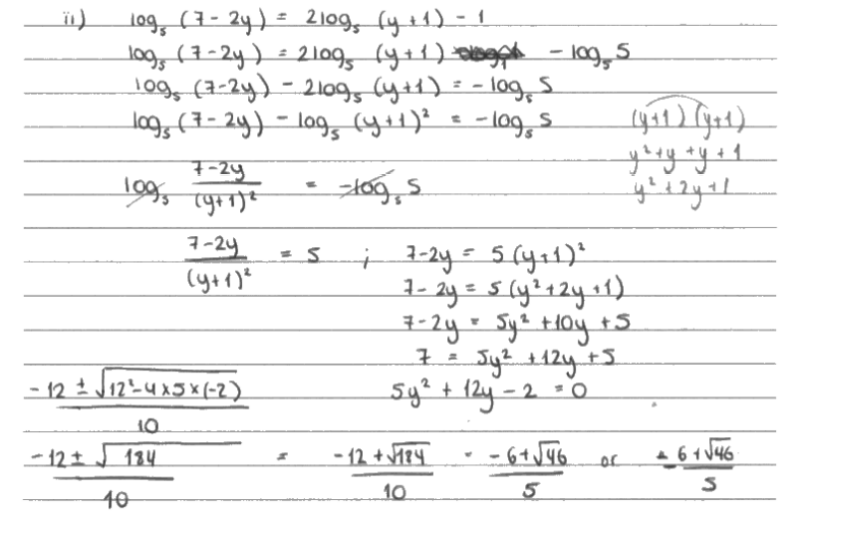 ii) log₅ (7-2y) = 2log₅ (y+1) - 1
log₅ (7-2y) = 2log₅ (y+1) - log₅ 5
log₅ (7-2y) - 2log₅ (y+1) = -log₅ 5
log₅ (7-2y) - log₅ (y+1)² = -log₅ 5
(y+1)(y+1)
y²+y+y+1
y²+2y+1
log₅ (7-2y)/(y+1)² = -log₅ 5
(7-2y)/(y+1)² = 5 ; 7-2y = 5(y+1)²
7-2y = 5(y²+2y+1)
7-2y = 5y²+10y+5
7 = 5y²+12y+5
5y²+12y-2=0
(-12 ± √(12²-4×5×(-2)))/10
(-12 ± √184)/10 = (-12+√184)/10 = (-6+√46)/5 or (-6+√46)/5